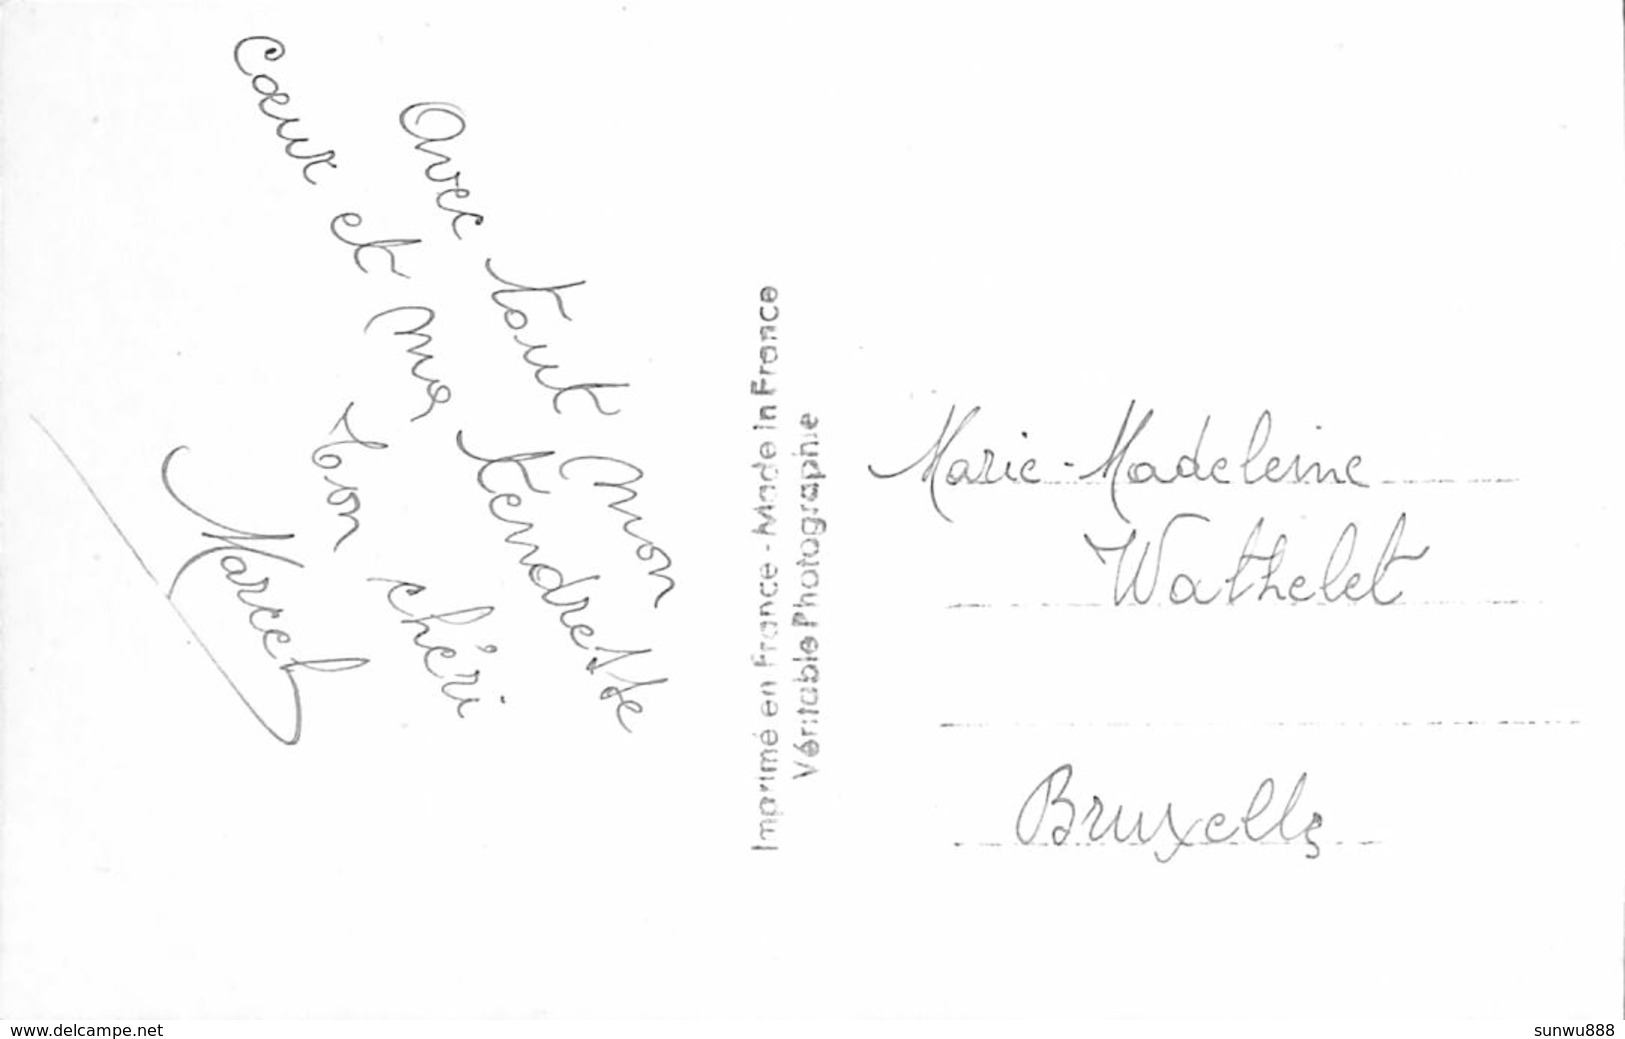 Avec tout mon
cœur et ma tendresse
ton chéri
Marcel
Imprimé en France - Made in France
Véritable Photographie
Marie-Madeleine
Wathelet
Bruxelles
www.delcampe.net
sunwu888